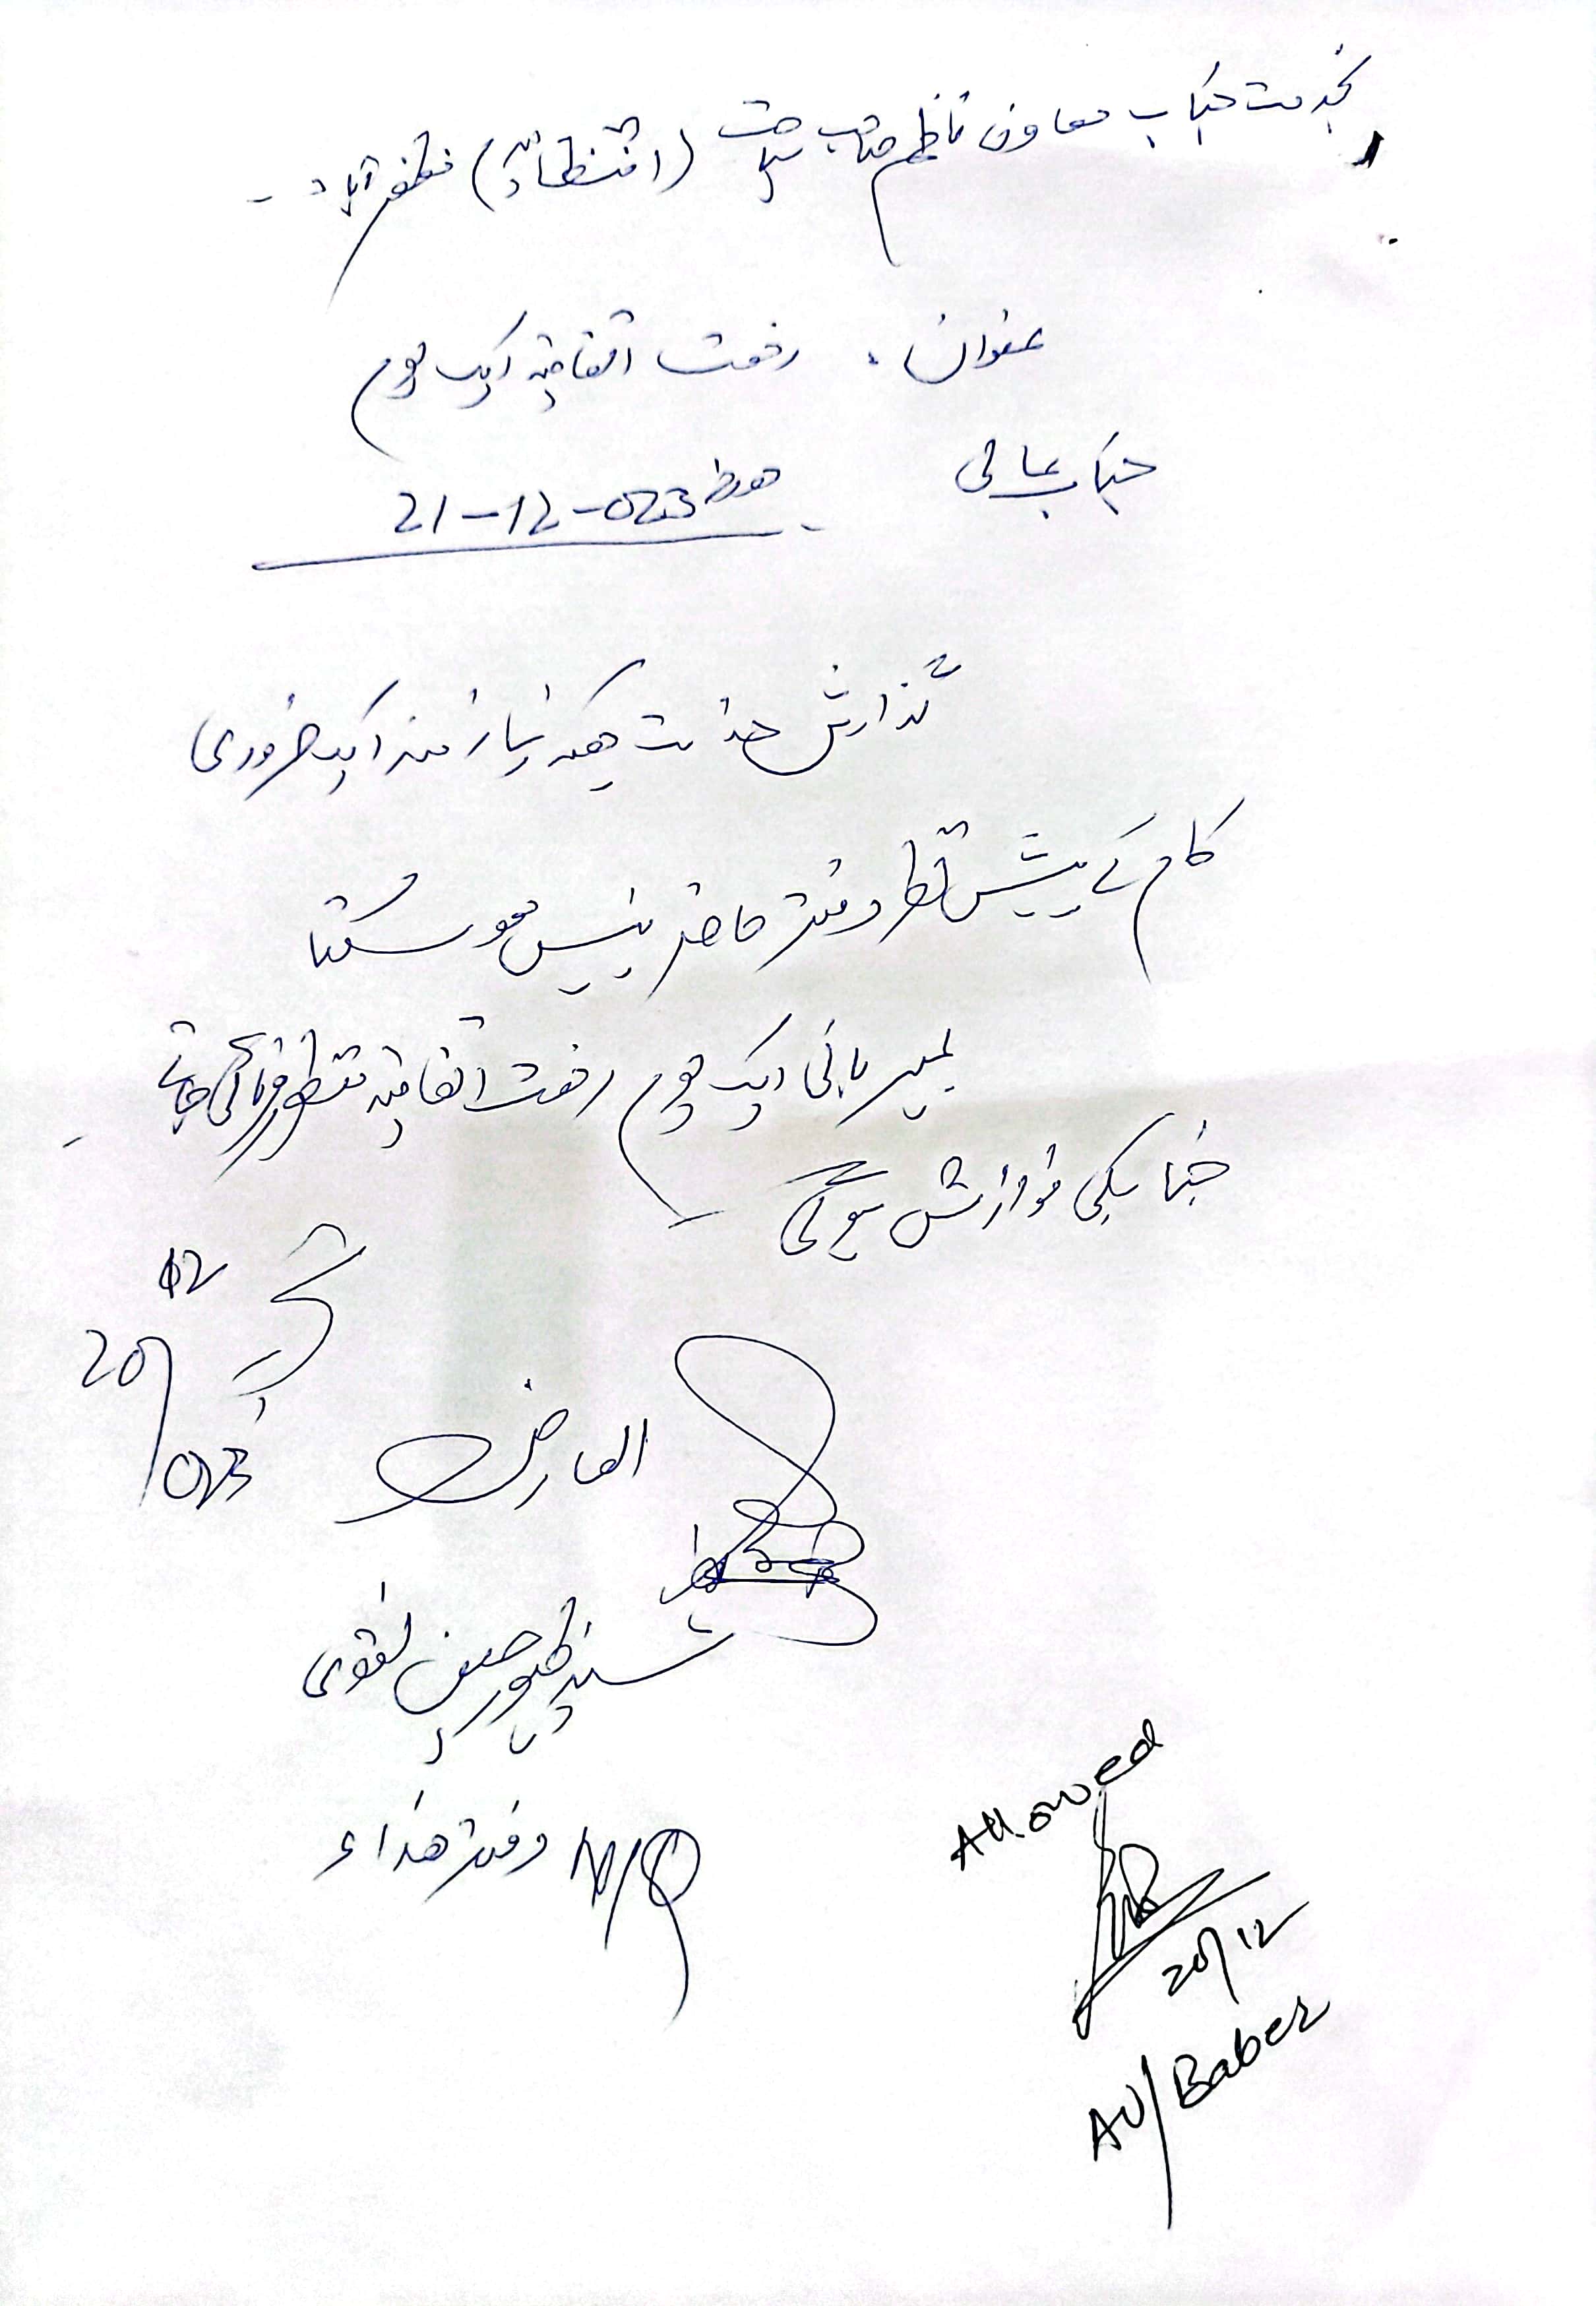 بخدمت جناب معاون ناظم صاحب سیاحت (انتظامیہ) مظفرآباد۔
عنوان: رخصت اتفاقیہ ایک یوم
جناب عالی
مورخہ 21-12-023
گذارش خدمت ہیکہ نیازمند ایک ضروری
کام کے پیش نظر دفتر حاضر نہیں ہو سکتا
بمہربانی ایک یوم رخصت اتفاقیہ منظور فرمائی جائے۔
جنابکی نوازش ہوگی
20/12/023
العارض
سید ظہور حسین نقوی
N/Q دفتر ھذاء
Allowed
20/12
AD/Baber